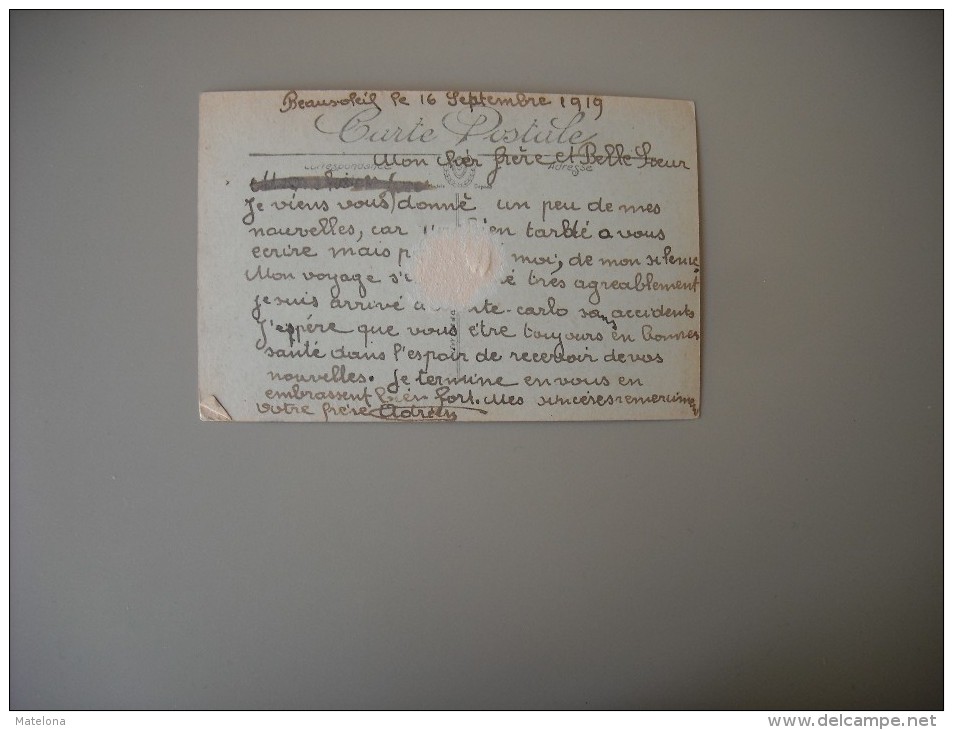 Beausoleil le 16 Septembre 1919
Carte Postale
Correspondance Adresse
Mon cher frère et Belle Soeur
Je viens vous donné un peu de mes
nouvelles, car bien tardé a vous
ecrire mais moi, de mon silence
Mon voyage très agreablement
je suis arrivé carlo sans accidents
J'espére que vous être toujours en bonnes
santé dans l'espoir de recevoir de vos
nouvelles. Je termine en vous en
embrassent bien fort. Mes sincères
votre frère Adrien
Matelona
www.delcampe.net